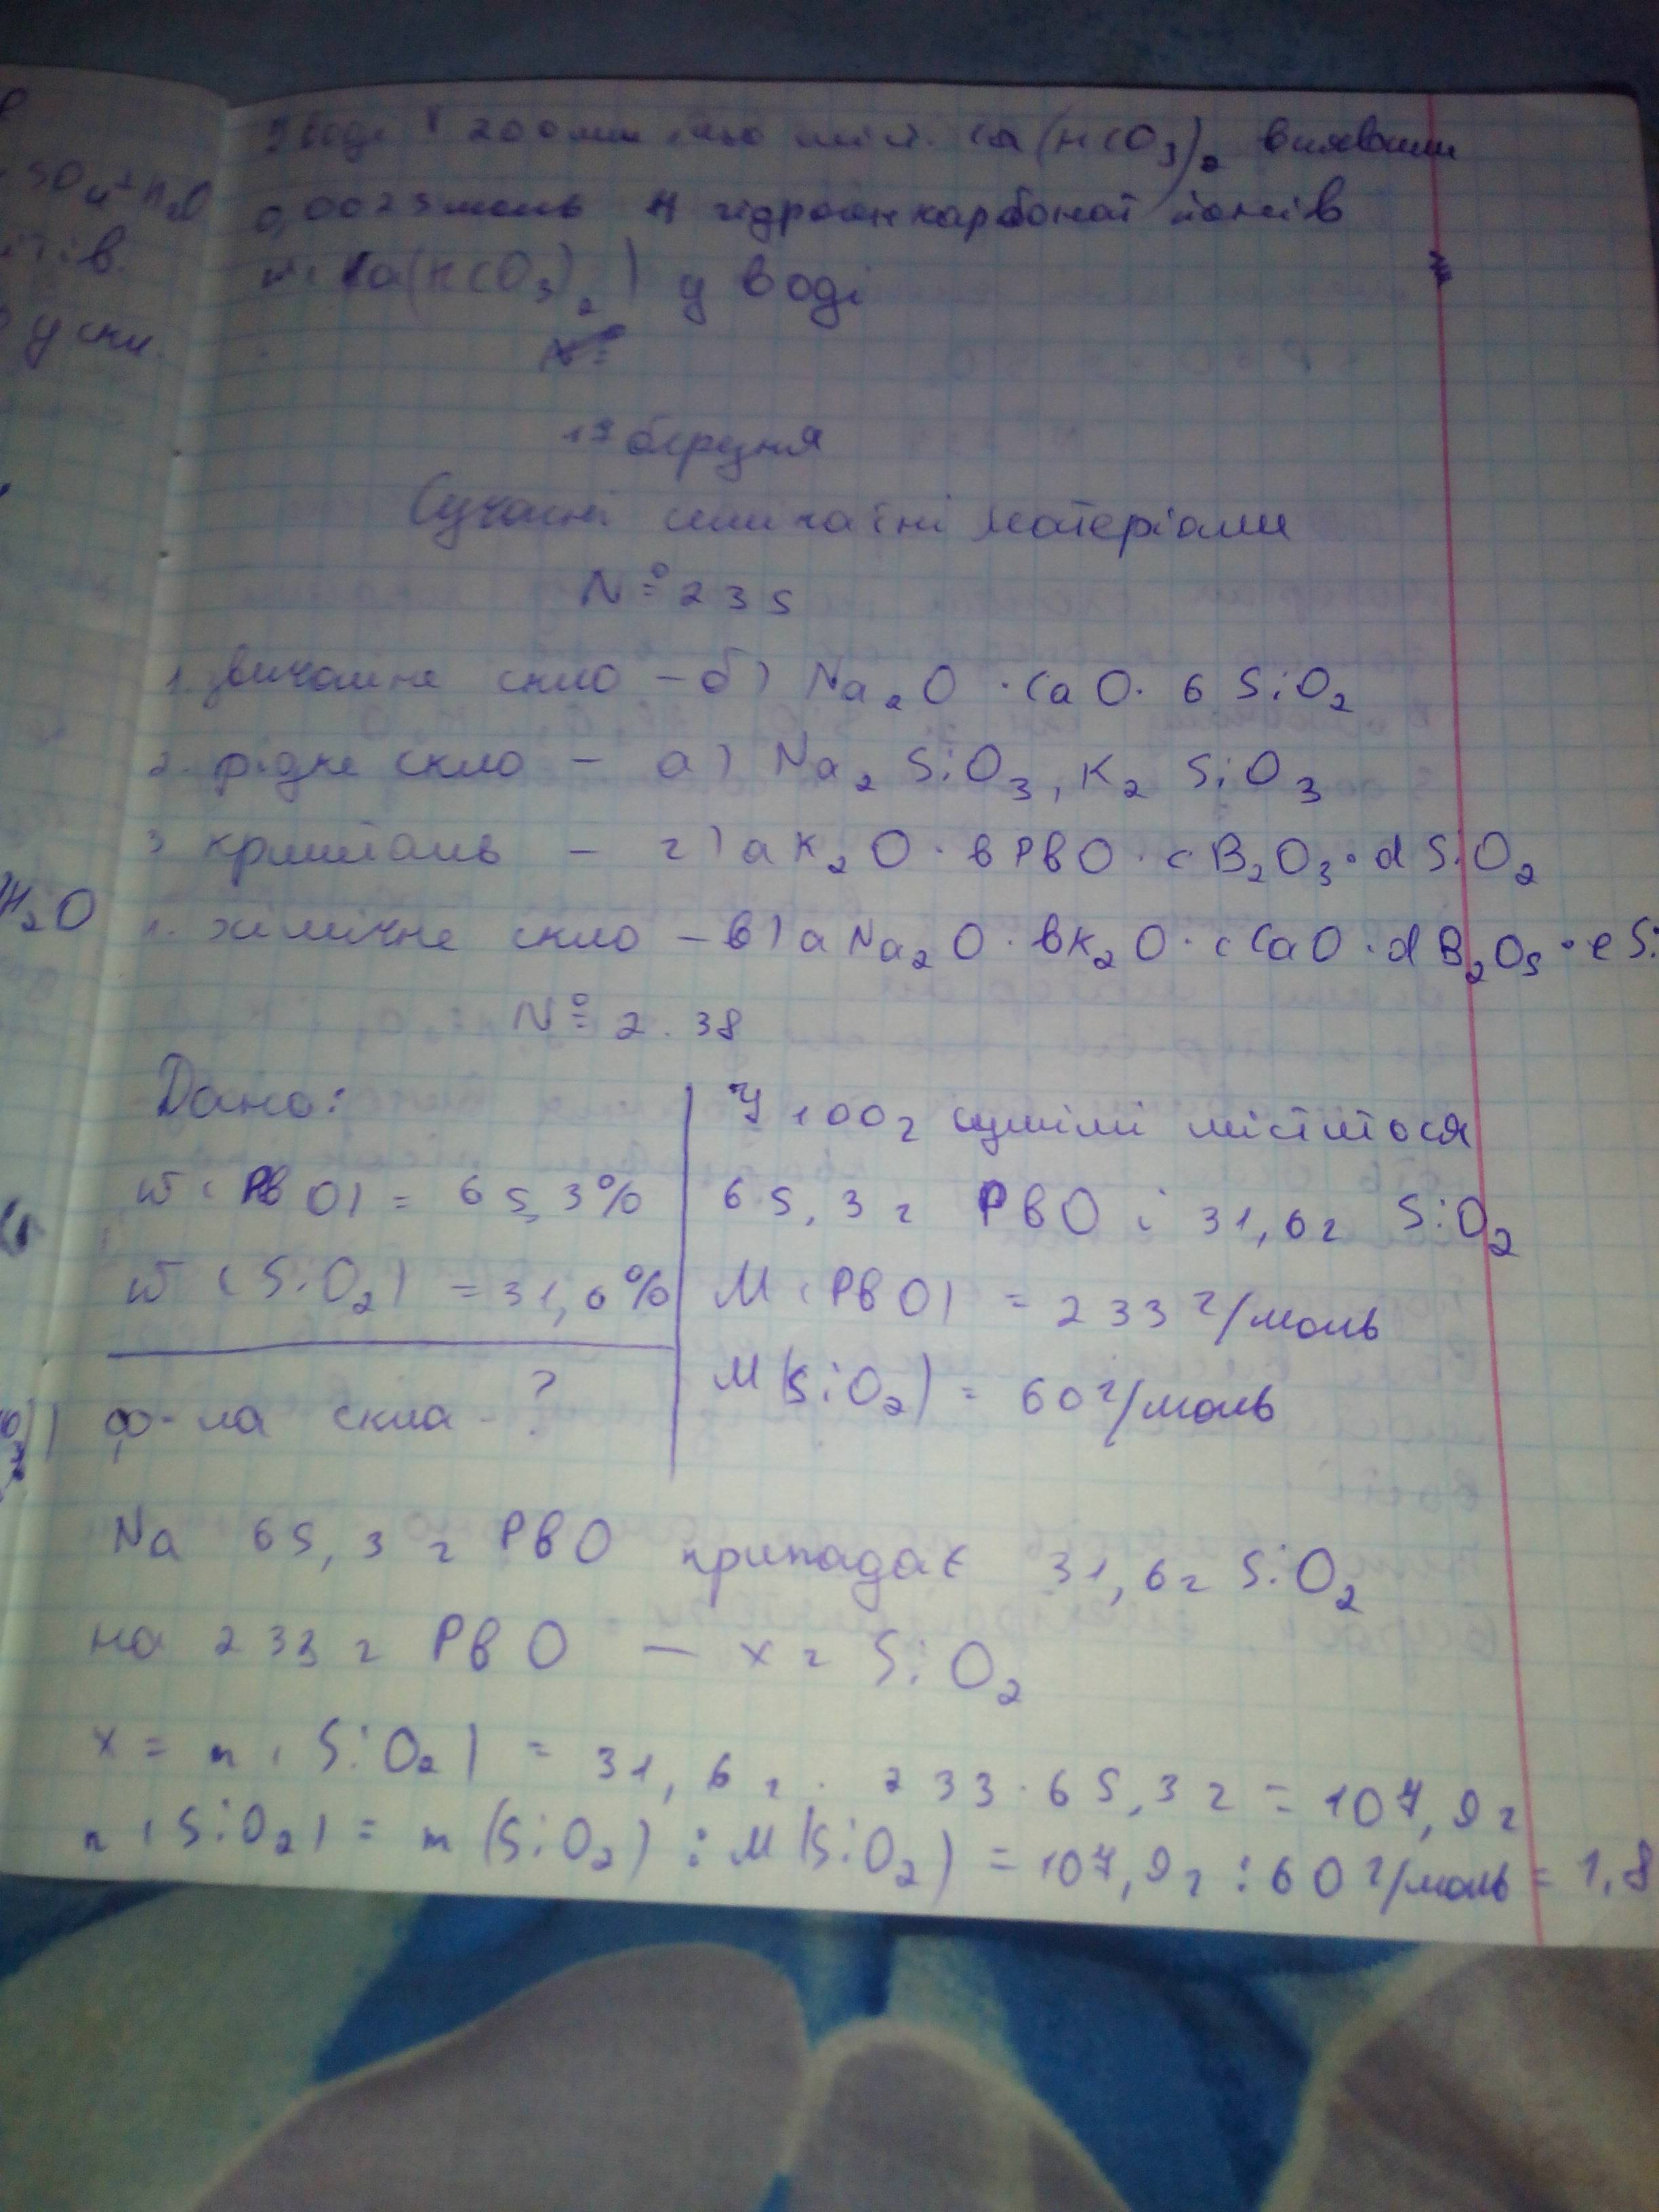 У воді V 200мл що міст. Ca(HCO3)2 виявили
0,0025моль гідроген карбонат йонів
Ca(HCO3)2) у воді
№
19 березня
Сучасні силікатні матеріали
№ 235
1. звичайне скло – б) Na2O · CaO · 6 SiO2
2. рідке скло – а) Na2 SiO3, K2 SiO3
3 кришталь – г) a K2O · b PbO · c B2O3 · d SiO2
хімічне скло – в) a Na2O · b K2O · c CaO · d B2O5 · e Si
№ 2.38
Дано:
w (PbO) = 65,3%
w (SiO2) = 31,6%
ф-ла скла - ?
У 100г суміші міститься
65,3 г PbO і 31,6г SiO2
M (PbO) = 233 г/моль
M(SiO2) = 60 г/моль
Na 65,3 г PbO припадає 31,6г SiO2
на 233 г PbO – x г SiO2
x = m (SiO2) = 31,6 г · 233 · 65,3 г = 107,9 г
n (SiO2) = m (SiO2) : M(SiO2) = 107,9г : 60 г/моль = 1,8
SO4 H2O
ів.
H2O